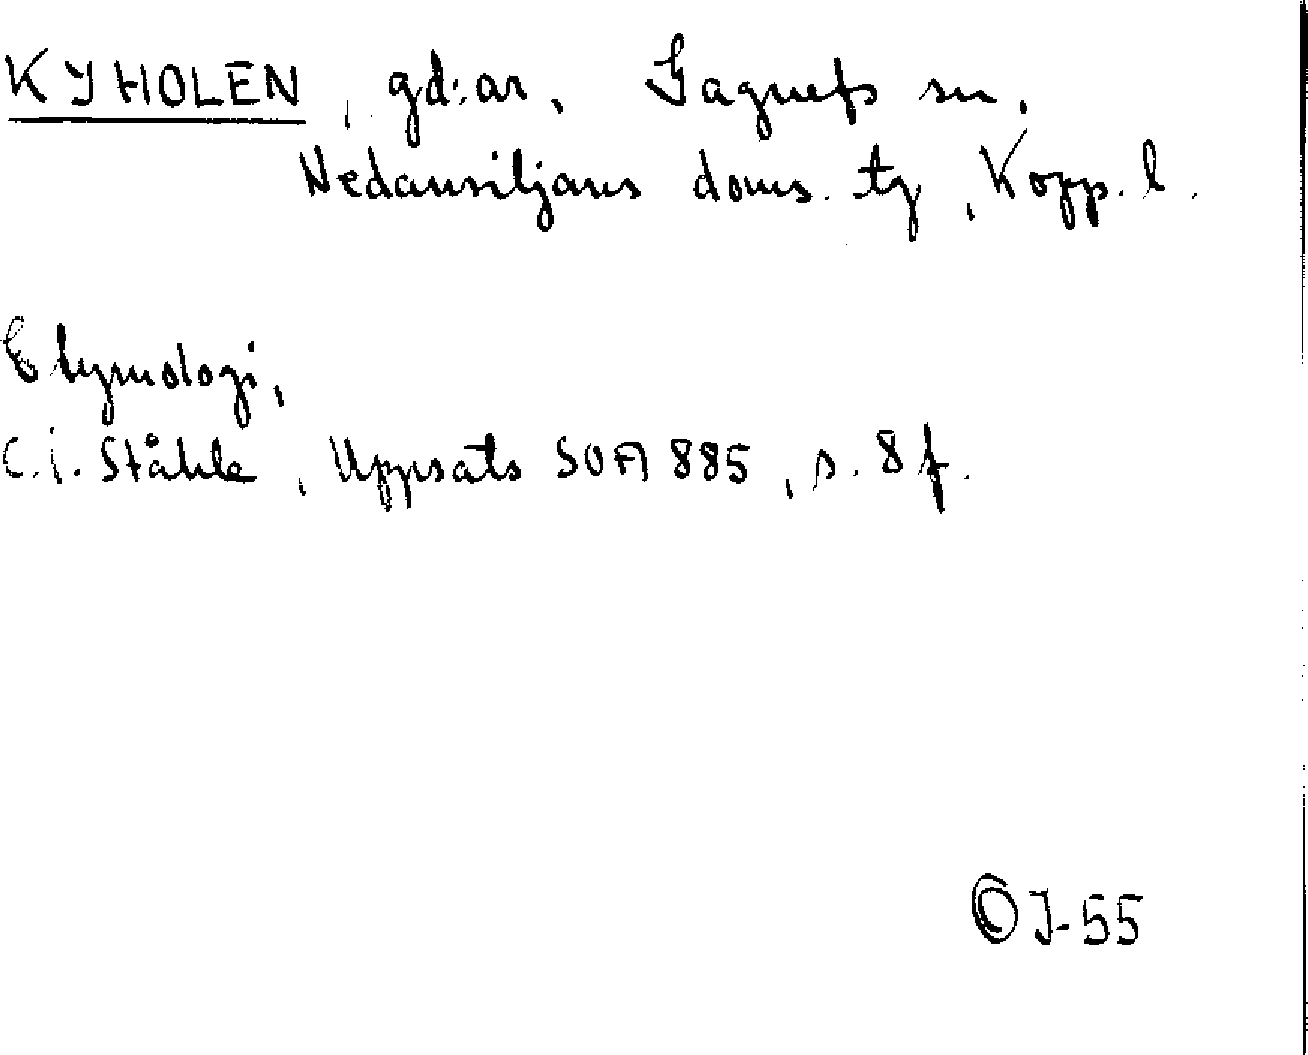 KYHOLEN, gd:ar, Gagnefs sn,
Nedansiljans doms. tg, Kopp. l.
Etymologi,
C.I. Ståhle, Uppsats SOA 885, s. 8 f.
© J-55